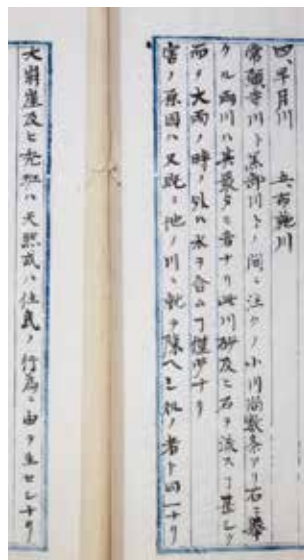 四、早月川 五布施川
常願寺川ト黒部川トノ間ニ注クノ小川尚数条アリ右ニ挙
クル両川ハ其最タモ者ナリ此川砂及ヒ石ヲ流スヿ甚シク
而テ大雨ノ時ノ外ハ水ヲ含ムヿ僅少ナリ
害ノ原因ハ又既ニ他ノ川ニ就テ陳ヘシ所ノ者ト同一ナリ
大崩崖及ヒ禿ハ天然或ハ住民ノ行為ニ由テ生セシナリ